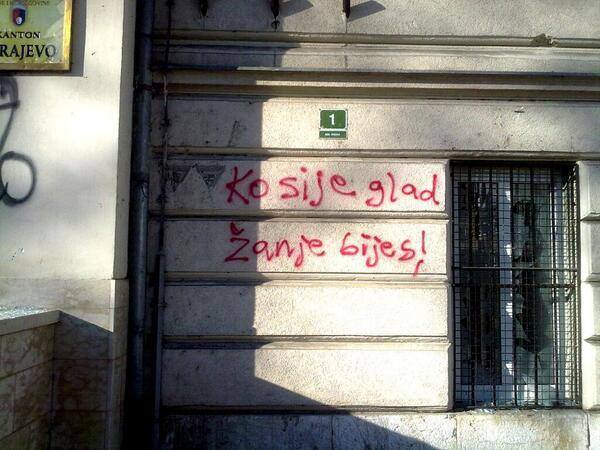 KANTON
SARAJEVO
1
Ko sije glad
žanje bijes!